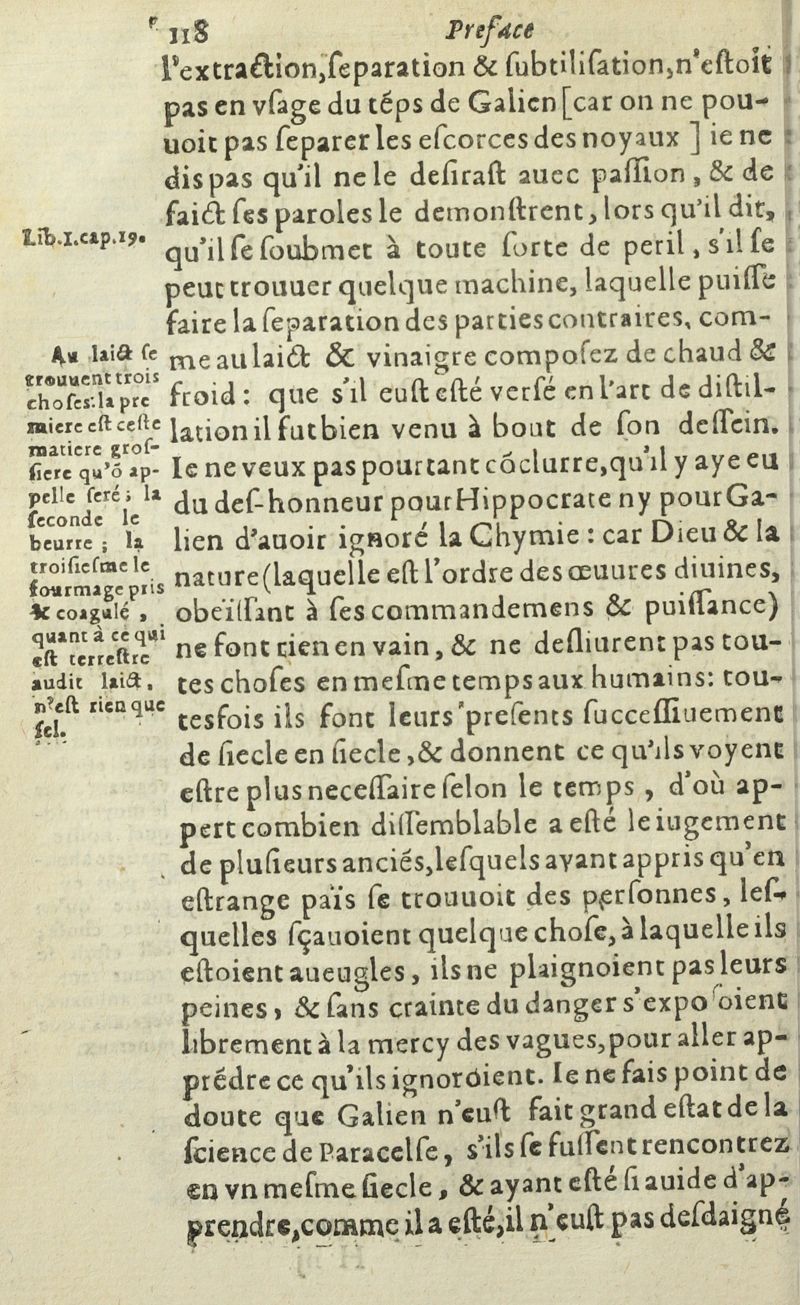 118 Preface
l'extraction,ſeparation & ſubtiliſation,n'eſtoit
pas en vſage du tẽps de Galien [car on ne pou-
uoit pas ſeparer les eſcorces des noyaux ] ie ne
dis pas qu'il ne le deſiraſt auec paſſion, & de
faict ſes paroles le demonſtrent, lors qu'il dit,
qu'il ſe ſoubmet à toute ſorte de peril, s'il ſe
peut trouuer quelque machine, laquelle puiſſe
faire la ſeparation des parties contraires, com-
me au laict & vinaigre compoſez de chaud &
froid : que s'il euſt eſté verſé en l'art de diſtil-
lation il fut bien venu à bout de ſon deſſein.
Ie ne veux pas pourtant cõclurre,qu'il y aye eu
du deſ-honneur pour Hippocrate ny pour Ga-
lien d'auoir ignoré la Chymie : car Dieu & la
nature (laquelle eſt l'ordre des œuures diuines,
obeïſſant à ſes commandemens & puiſſance)
ne font rien en vain, & ne deſliurent pas tou-
tes choſes en meſme temps aux humains: tou-
tesfois ils font leurs preſents ſucceſſiuement
de ſiecle en ſiecle, & donnent ce qu'ils voyent
eſtre plus neceſſaire ſelon le temps, d'où ap-
pert combien diſſemblable a eſté le iugement
de pluſieurs anciẽs,leſquels ayant appris qu'en
eſtrange païs ſe trouuoit des perſonnes, leſ-
quelles ſçauoient quelque choſe, à laquelle ils
eſtoient aueugles, ils ne plaignoient pas leurs
peines, & ſans crainte du danger s'expoſoient
librement à la mercy des vagues, pour aller ap-
prẽdre ce qu'ils ignoroient. Ie ne fais point de
doute que Galien n'euſt fait grand eſtat de la
ſcience de Paracelſe, s'ils ſe fuſſent rencontrez
en vn meſme ſiecle, & ayant eſté ſi auide d'ap-
prendre,comme il a eſté,il n'euſt pas deſdaigné
Lib.1.cap.19.
Au laict ſe
trouuent trois
choſes:la pre
miere eſt ceſte
matiere groſ-
ſiere qu'õ ap-
pelle ſeré ; la
ſeconde le
beurre ; la
troiſieſme le
fourmage pris
& coagulé ,
quant à ce qui
eſt terreſtre
audit laict,
n'eſt rien que
ſel.